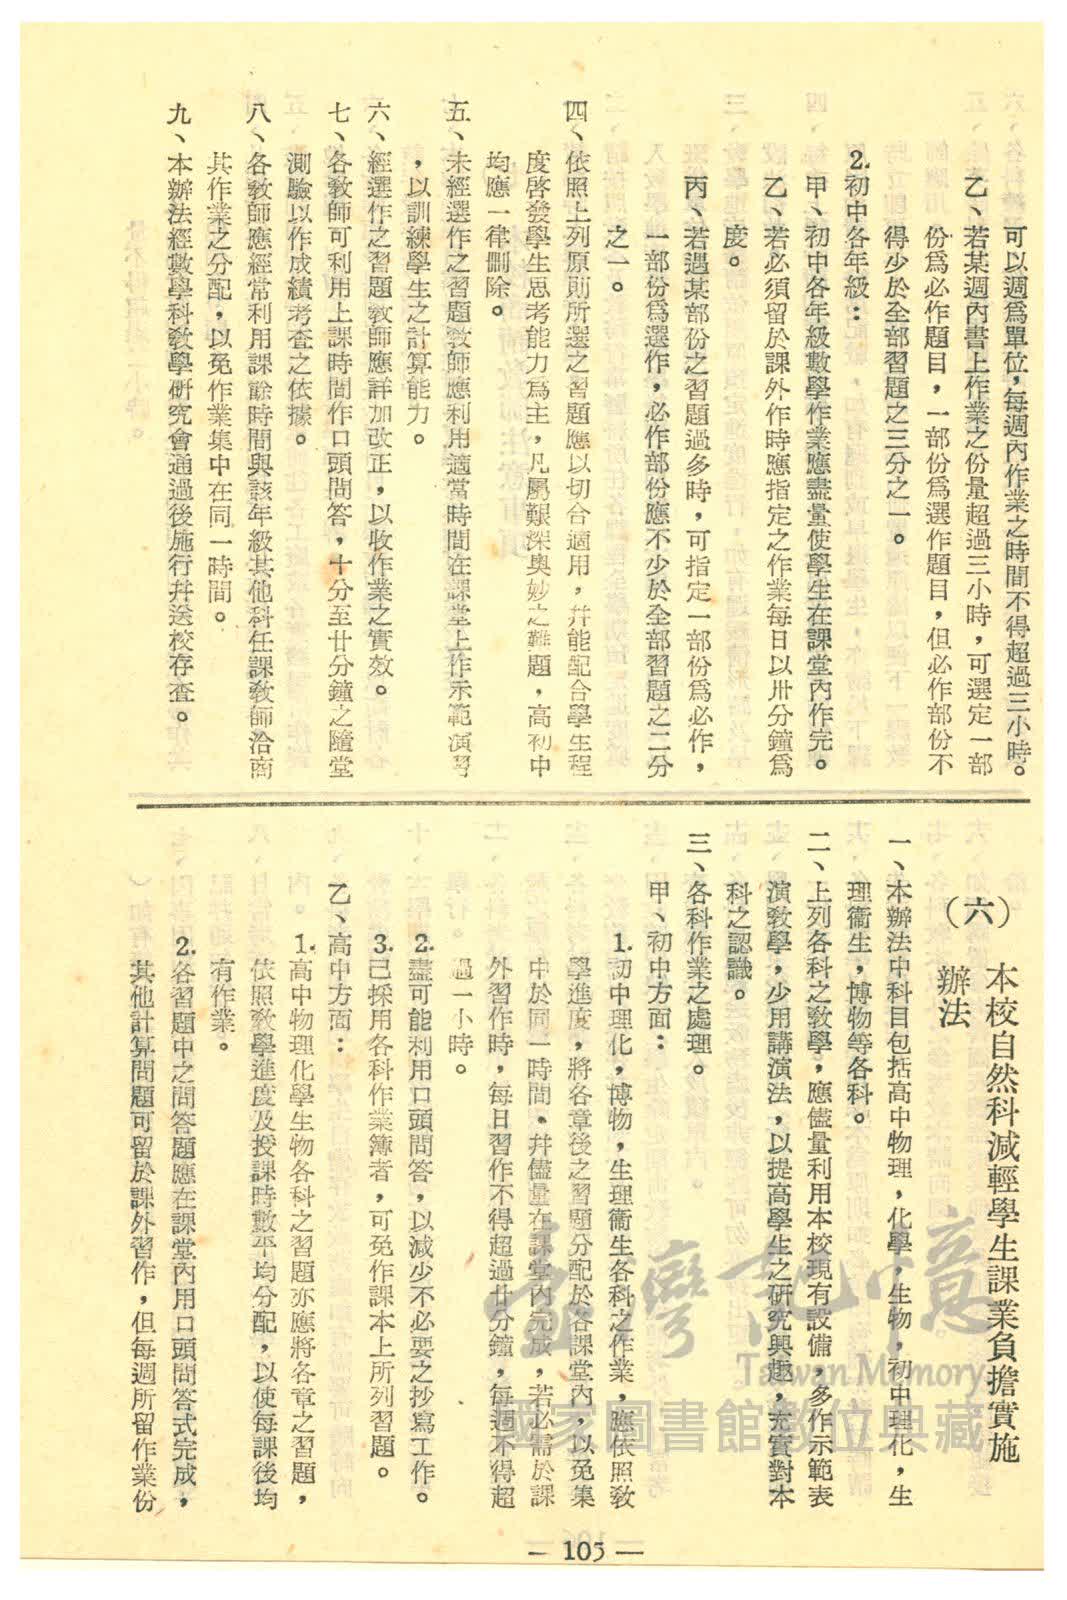 可以週爲單位，每週內作業之時間不得超過三小時。
乙、若某週內書上作業之份量超過三小時，可選定一部
份爲必作題目，一部份爲選作題目，但必作部份不
得少於全部習題之三分之一。
2.初中各年級：
甲、初中各年級數學作業應盡量使學生在課堂內作完。
乙、若必須留於課外作時應指定之作業每日以卅分鐘爲
度。
丙、若遇某部份之習題過多時，可指定一部份爲必作，
一部份爲選作，必作部份應不少於全部習題之二分
之一。
四、依照上列原則所選之習題應以切合適用，幷能配合學生程
度啓發學生思考能力爲主，凡屬艱深奧妙之難題，高初中
均應一律删除。
五、未經選作之習題敎師應利用適當時間在課堂上作示範演習
，以訓練學生之計算能力。
六、經選作之習題敎師應詳加改正，以收作業之實效。
七、各敎師可利用上課時間作口頭問答，十分至廿分鐘之隨堂
測驗以作成績考查之依據。
八、各敎師應經常利用課餘時間與該年級其他科任課敎師洽商
其作業之分配，以免作業集中在同一時間。
九、本辦法經數學科敎學硏究會通過後施行幷送校存查。
（六）
本校自然科減輕學生課業負擔實施
辦法
一、本辦法中科目包括高中物理，化學，生物，初中理化，生
理衞生，博物等各科。
二、上列各科之敎學，應儘量利用本校現有設備，多作示範表
演敎學，少用講演法，以提高學生之硏究興趣，充實對本
科之認識。
三、各科作業之處理。
甲、初中方面：
1.初中理化，博物，生理衞生各科之作業，應依照敎
學進度，將各章後之習題分配於各課堂內，以免集
中於同一時間。幷儘量在課堂內完成，若必需於課
外習作時，每日習作不得超過廿分鐘，每週不得超
過一小時。
2.盡可能利用口頭問答，以減少不必要之抄寫工作。
3.已採用各科作業簿者，可免作課本上所列習題。
乙、高中方面：
1.高中物理化學生物各科之習題亦應將各章之習題，
依照敎學進度及授課時數平均分配，以使每課後均
有作業。
2.各習題中之問答題應在課堂內用口頭問答式完成，
其他計算問題可留於課外習作，但每週所留作業份
— 105 —
臺灣記憶
Taiwan Memory
國家圖書館數位典藏